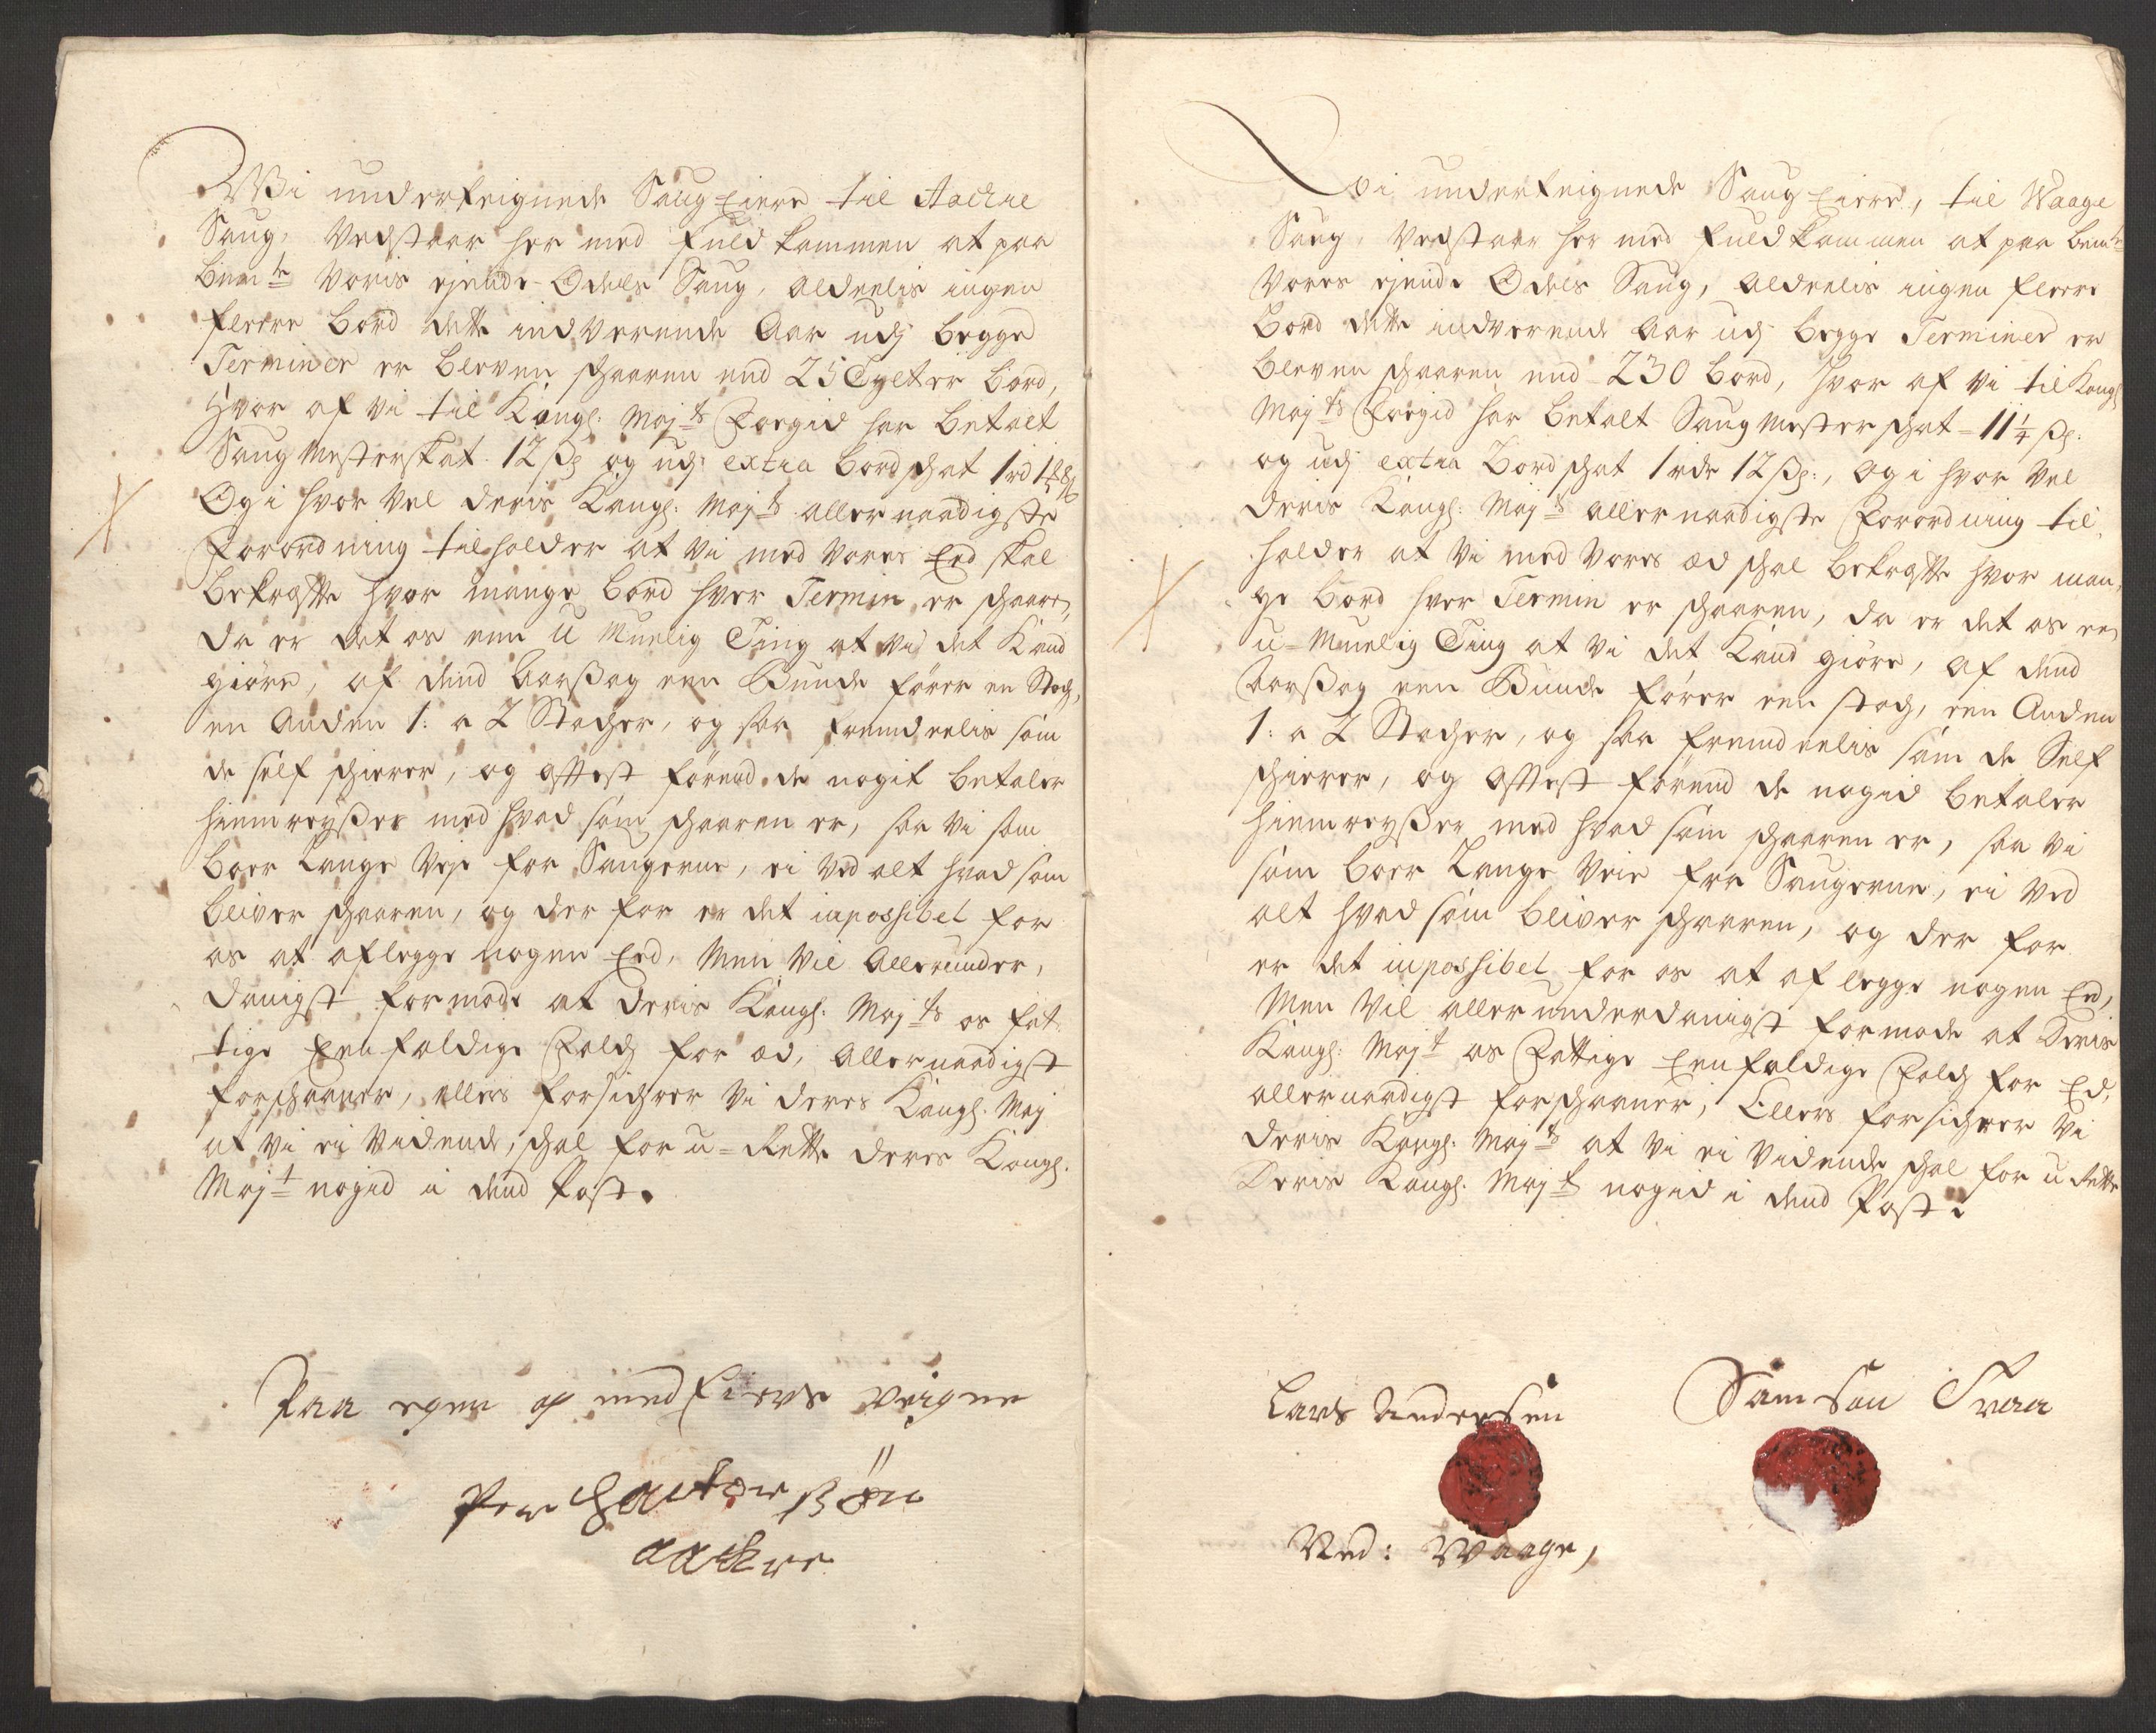 Wi underteignede Saug Eiere til Aachre
Saug, Vedstaar her med fuldkommen at paa
bem:te Voris ejende Odels Saug, aldeelis ingen
fleere bord dette indverende Aar udj begge
Terminer er bleven schaaren end 25 Tylter bord,
Hvor af vi til Kongl: Maj:ts Foegid har betalt
Saug Mesterskat 12 ß og udj extra bordschat 1 rd
Og i hvor vel deris Kongl: Maj:ts allernaadigste
Forordning tilholder at vi med vores Eed skal
bekræfte hvor mange bord hver Termin er schaaren,
da er det os een U Muelig Ting at vi det Kand
giöre, af dend Aarsag een Bunde förer en Stoch,
en Anden 1: a 2 Stocher, og saa fremdeelis som
de self schierer, og oftest förend de nogit betaler
hiemreyßer med hvad som schaaren er, saa vi som
boer Lange Veje for Saugerne, ei ved alt hvad som
bliver schaaren, og der for er det inpossibel for
os at aflegge nogen Eed, Men vil Allerunder,
danigst formode at deris Kongl: Maj:ts os fat,
tige Eenfoldige Folch for æd, Allernaadigst
forschaaner, ellers forsichrer vi deres Kongl. Maj
at vi ei vidende, schal for u-Rette deres Kongl.
Maj:t nogid i dend Post.
Paa egen og medEieris Veigne
Per
aachre
Vi underteignede Saug Eiere, til Waage
Saug, Vedstaar her med fuldkommen at paa bem:te
Vores ejende Odels Saug, Aldeelis ingen fleere
bord dette indverende Aar udj begge Terminer er
bleven schaaren end 230 bord, hvor af vi til Kongl
Maj:ts Foegid har betalt Saug Mester schat - 11 1/4 ß:
og udj extra Bord schat 1 rdr 12 ß:, og i hvor vel
deris Kongl: Maj:ts allernaadigste Forordning til,
holder at vi med vores æd schal bekræfte hvor man,
ge bord hver Termin er schaaren, da er det os en
u-Muelig Ting at vi det Kand giöre, af dend
Aarsag een Bunde förer een stoch, een Anden
1: a 2 Stocher, og saa fremdeelis som de Self
schierer, og oftest förend de nogid betaler
hiemreyßer med hvad som schaaren er, saa vi
som boer Lange Veie fra Saugerne, ei ved
alt hvad som bliver schaaren, og der for
er det inpossibel for os at aflegge nogen Eed,
Men vil allerunderdanigst formode at Deris
Kongl: Maj:t os Fattige Eenfoldige Folch for Ed,
allernaadigst forschaaner, Ellers forsichrer vi
deris Kongl: Maj:ts at vi ei vidende schal for u Rette
Deris Kongl: Maj:t nogid i dend Post.
Lars Andersen Samson Traa
Ned: Waage,